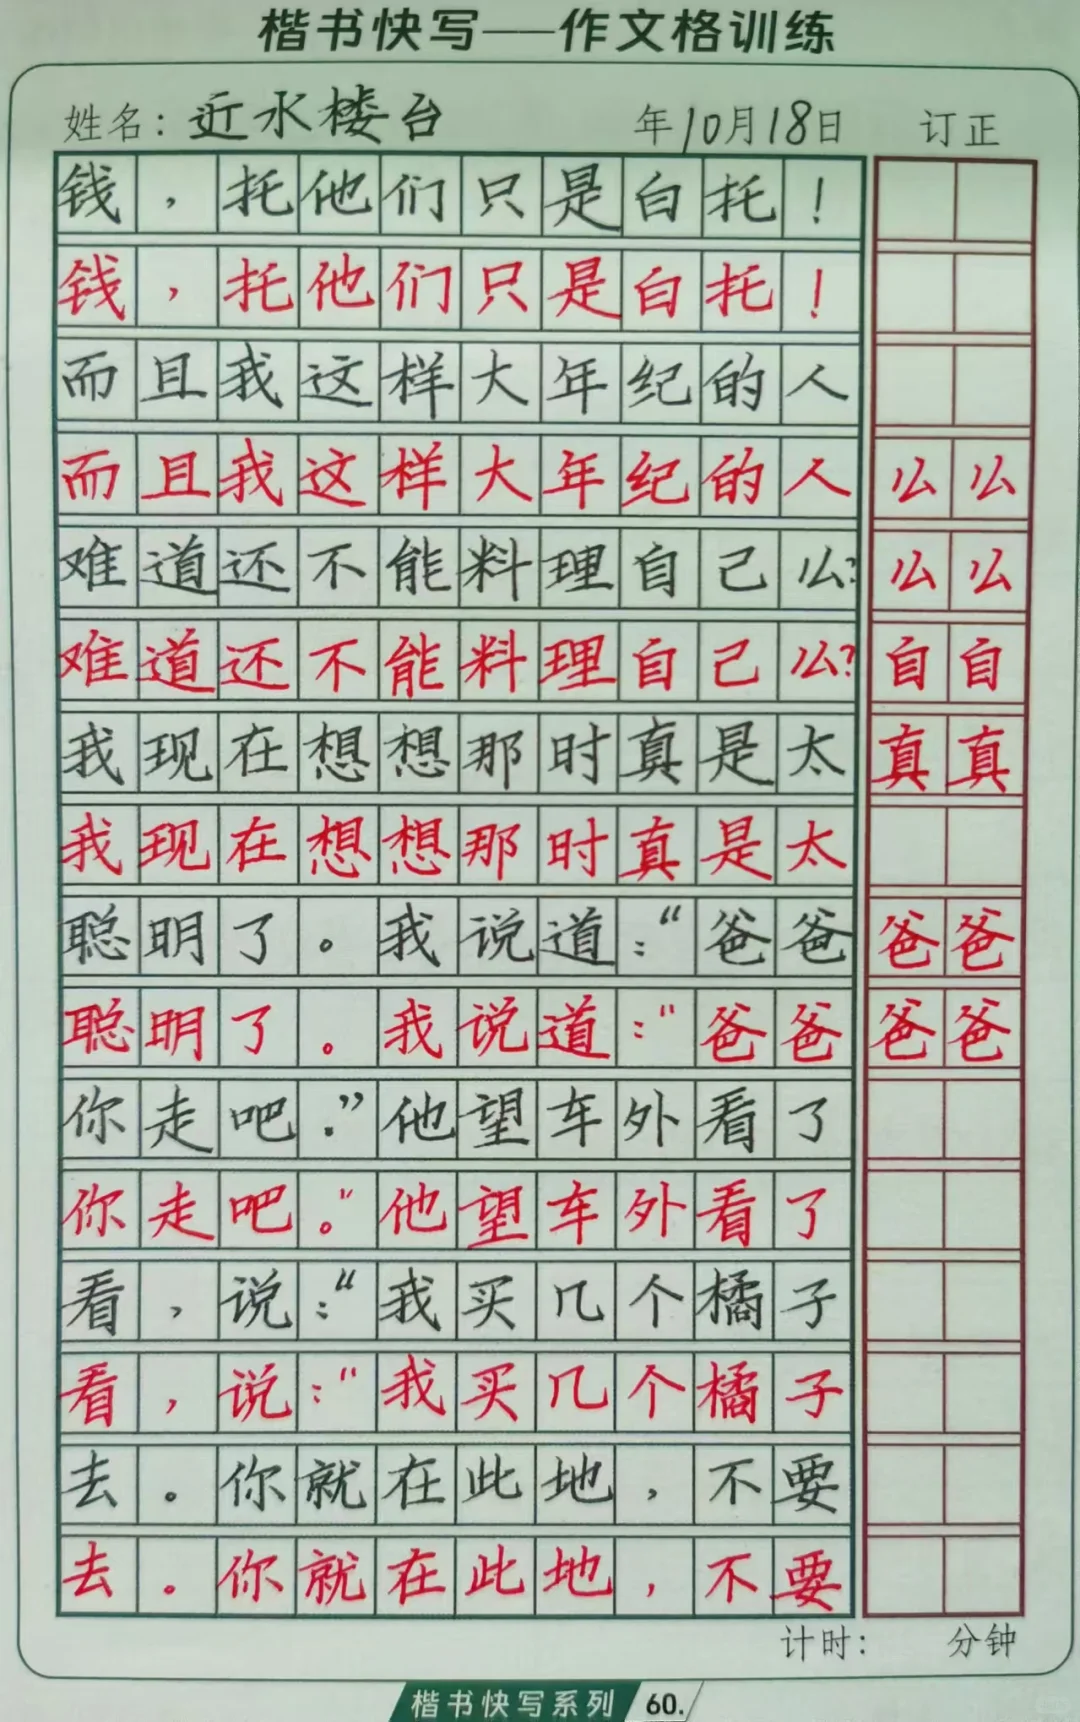 楷书快写——作文格训练
姓名：近水楼台 年10月18日 订正
钱，托他们只是白托！
钱，托他们只是白托！
而且我这样大年纪的人
而且我这样大年纪的人 么么
难道还不能料理自己么？ 么么
难道还不能料理自己么？ 自自
我现在想想那时真是太 真真
我现在想想那时真是太
聪明了。我说道：“爸爸 爸爸
聪明了。我说道：“爸爸 爸爸
你走吧．”他望车外看了
你走吧。”他望车外看了
看，说：“我买几个橘子
看，说：“我买几个橘子
去。你就在此地，不要
去。你就在此地，不要
计时： 分钟
楷书快写系列 60.